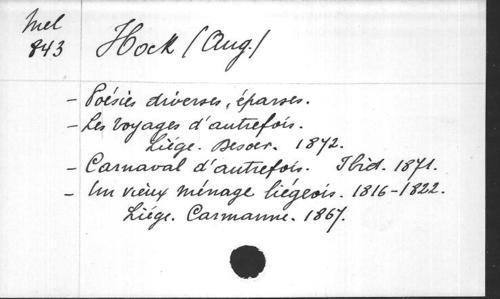 Mel
843
Hock (Aug.)
- Poésies diverses, éparses.
- Les voyages d'autrefois.
Liége. Desoer. 1872.
- Carnaval d'autrefois. Ibid. 1871.
- Un vieux ménage liégeois. 1816-1822.
Liége. Carmanne. 1867.